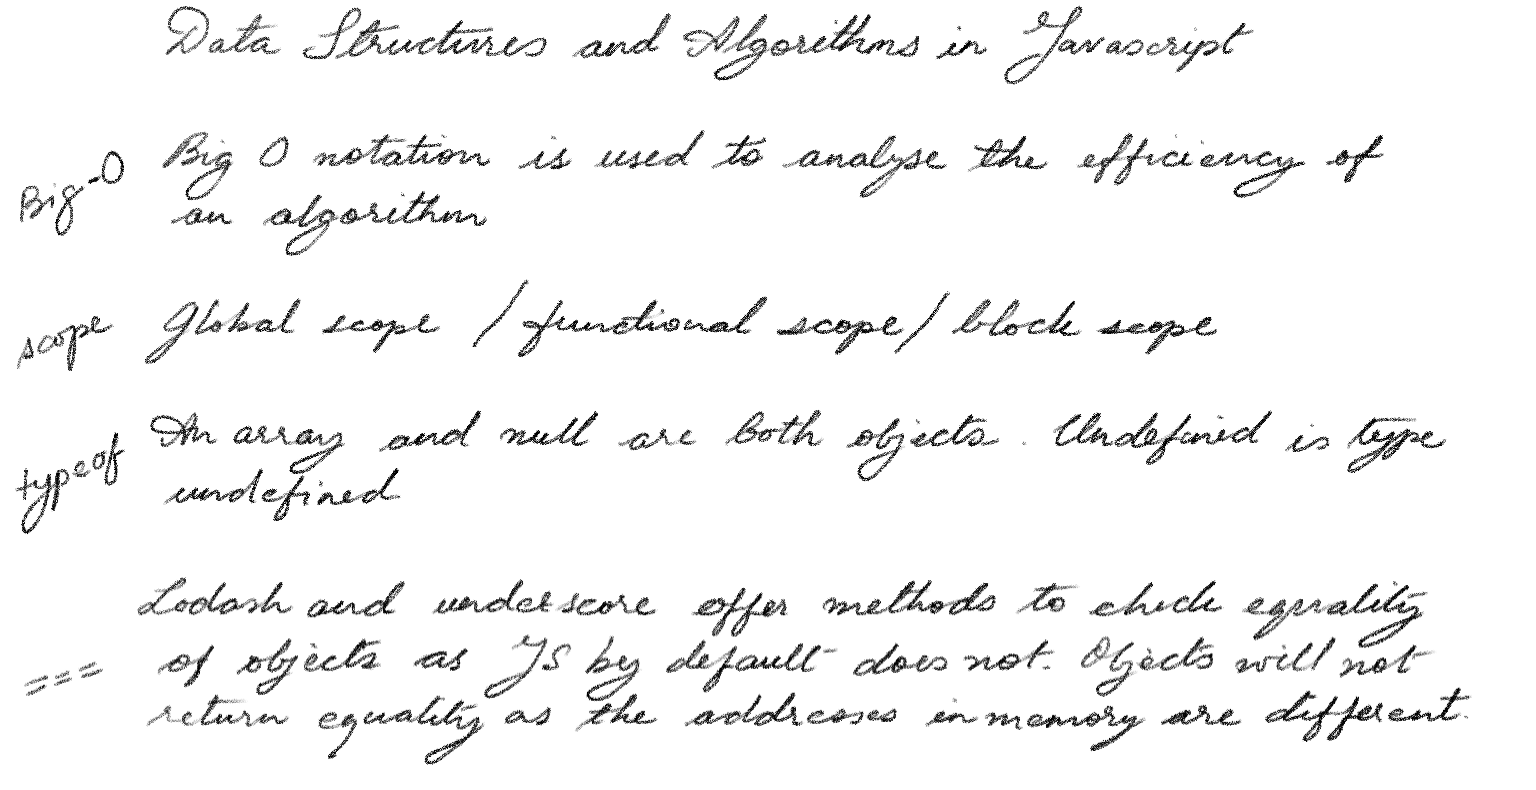 Data Structures and Algorithms in Javascript
Big-O Big O notation is used to analyse the efficiency of
an algorithm
scope Global scope / functional scope / block scope
typeof An array and null are both objects. Undefined is type
undefined
Lodash and underscore offer methods to check equality
=== of objects as JS by default does not. Objects will not
return equality as the addresses in memory are different.